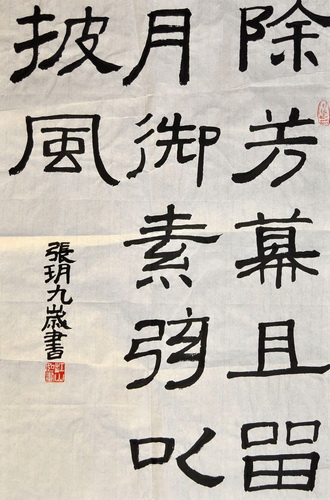 除芳幕且留
月御素弦以
披風
張玥九歲書